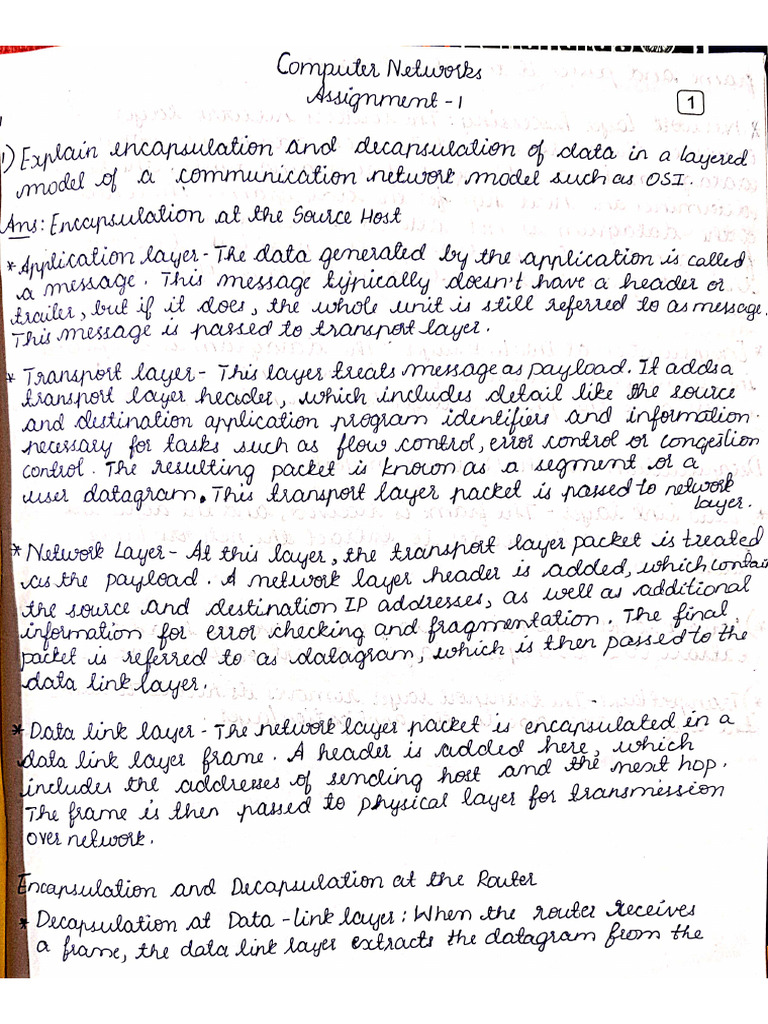 Computer Networks
Assignment - 1
1
1) Explain encapsulation and decapsulation of data in a layered
model of a communication network model such as OSI.
Ans: Encapsulation at the Source Host
* Application layer - The data generated by the application is called
a message. This message typically doesn't have a header or
trailer, but if it does, the whole unit is still referred to as message.
This message is passed to transport layer.
* Transport layer - This layer treats message as payload. It adds a
transport layer header, which includes detail like the source
and destination application program identifiers and information
necessary for tasks such as flow control, error control or congestion
control. The resulting packet is known as a segment or a
user datagram. This transport layer packet is passed to network
layer.
* Network Layer - At this layer, the transport layer packet is treated
as the payload. A network layer header is added, which contain
the source and destination IP addresses, as well as additional
information for error checking and fragmentation. The final
packet is referred to as datagram, which is then passed to the
data link layer.
* Data link layer - The network layer packet is encapsulated in a
data link layer frame. A header is added here, which
includes the addresses of sending host and the next hop.
The frame is then passed to physical layer for transmission
over network.
Encapsulation and Decapsulation at the Router
* Decapsulation at Data - link layer: When the router receives
a frame, the data link layer extracts the datagram from the